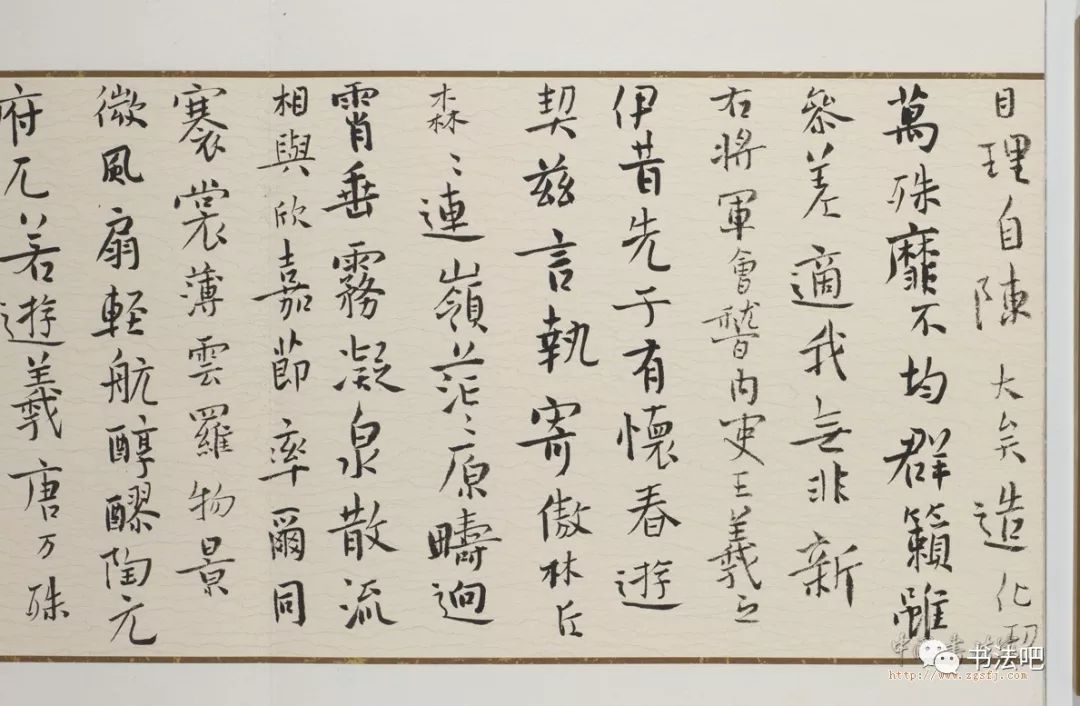 目理自陳大矣造化功
萬殊靡不均群籟雖
參差適我無非新
右將軍會稽內史王羲之
伊昔先子有懷春遊
契茲言執寄傲林丘
森〻連嶺茫〻原疇迥
霄垂霧凝泉散流
相與欣嘉節率爾同
褰裳薄雲羅物景
微風扇輕航醇醪陶元
府兀若遊羲唐万殊
书法吧
http://www.zgsfj.com